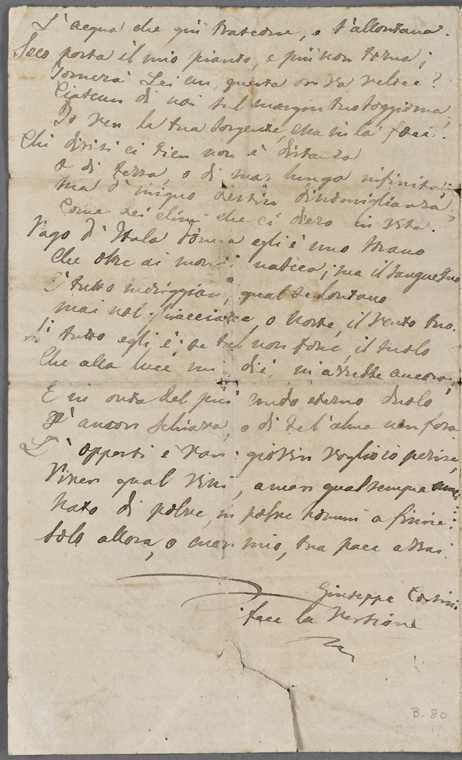 L'acqua che qui trascorre, e s'allontana.
Seco porta il mio pianto, e più non torna;
Tornerà Lei un, questa onda veloce?
Ciascun di noi sul margin tuo soggiorna,
Io ver la tua sorgente, Ella in la foce.
Chi divisi ci tien non è distanza
O di terra, o di mar lungo infinita;
Ma d'iniquo destin dissomiglianza
Come dei climi che ci diero in vita.
Vago d'Itala donna egli è uno strano
Che oltre ai monti natica; ma il sangue suo
È tutto meriggian, qual se lontano
mai nol ghiacciasse, o Norte, il vento tuo.
tutto egli è: se tal non fone, il suolo
Che alla luce mi diè, m'avrebbe ancora;
E in onta del più crudo eterno duolo
ancor schiavo, o di te l'alma non fora
opporsi è van: giovin voglio io perire,
Viver qual vissi, amar qual sempre
Nato di polve, in polve a finire:
Solo allora, o cuor mio, tua pace avrai.
Giuseppe
fece la Versione
B. 80